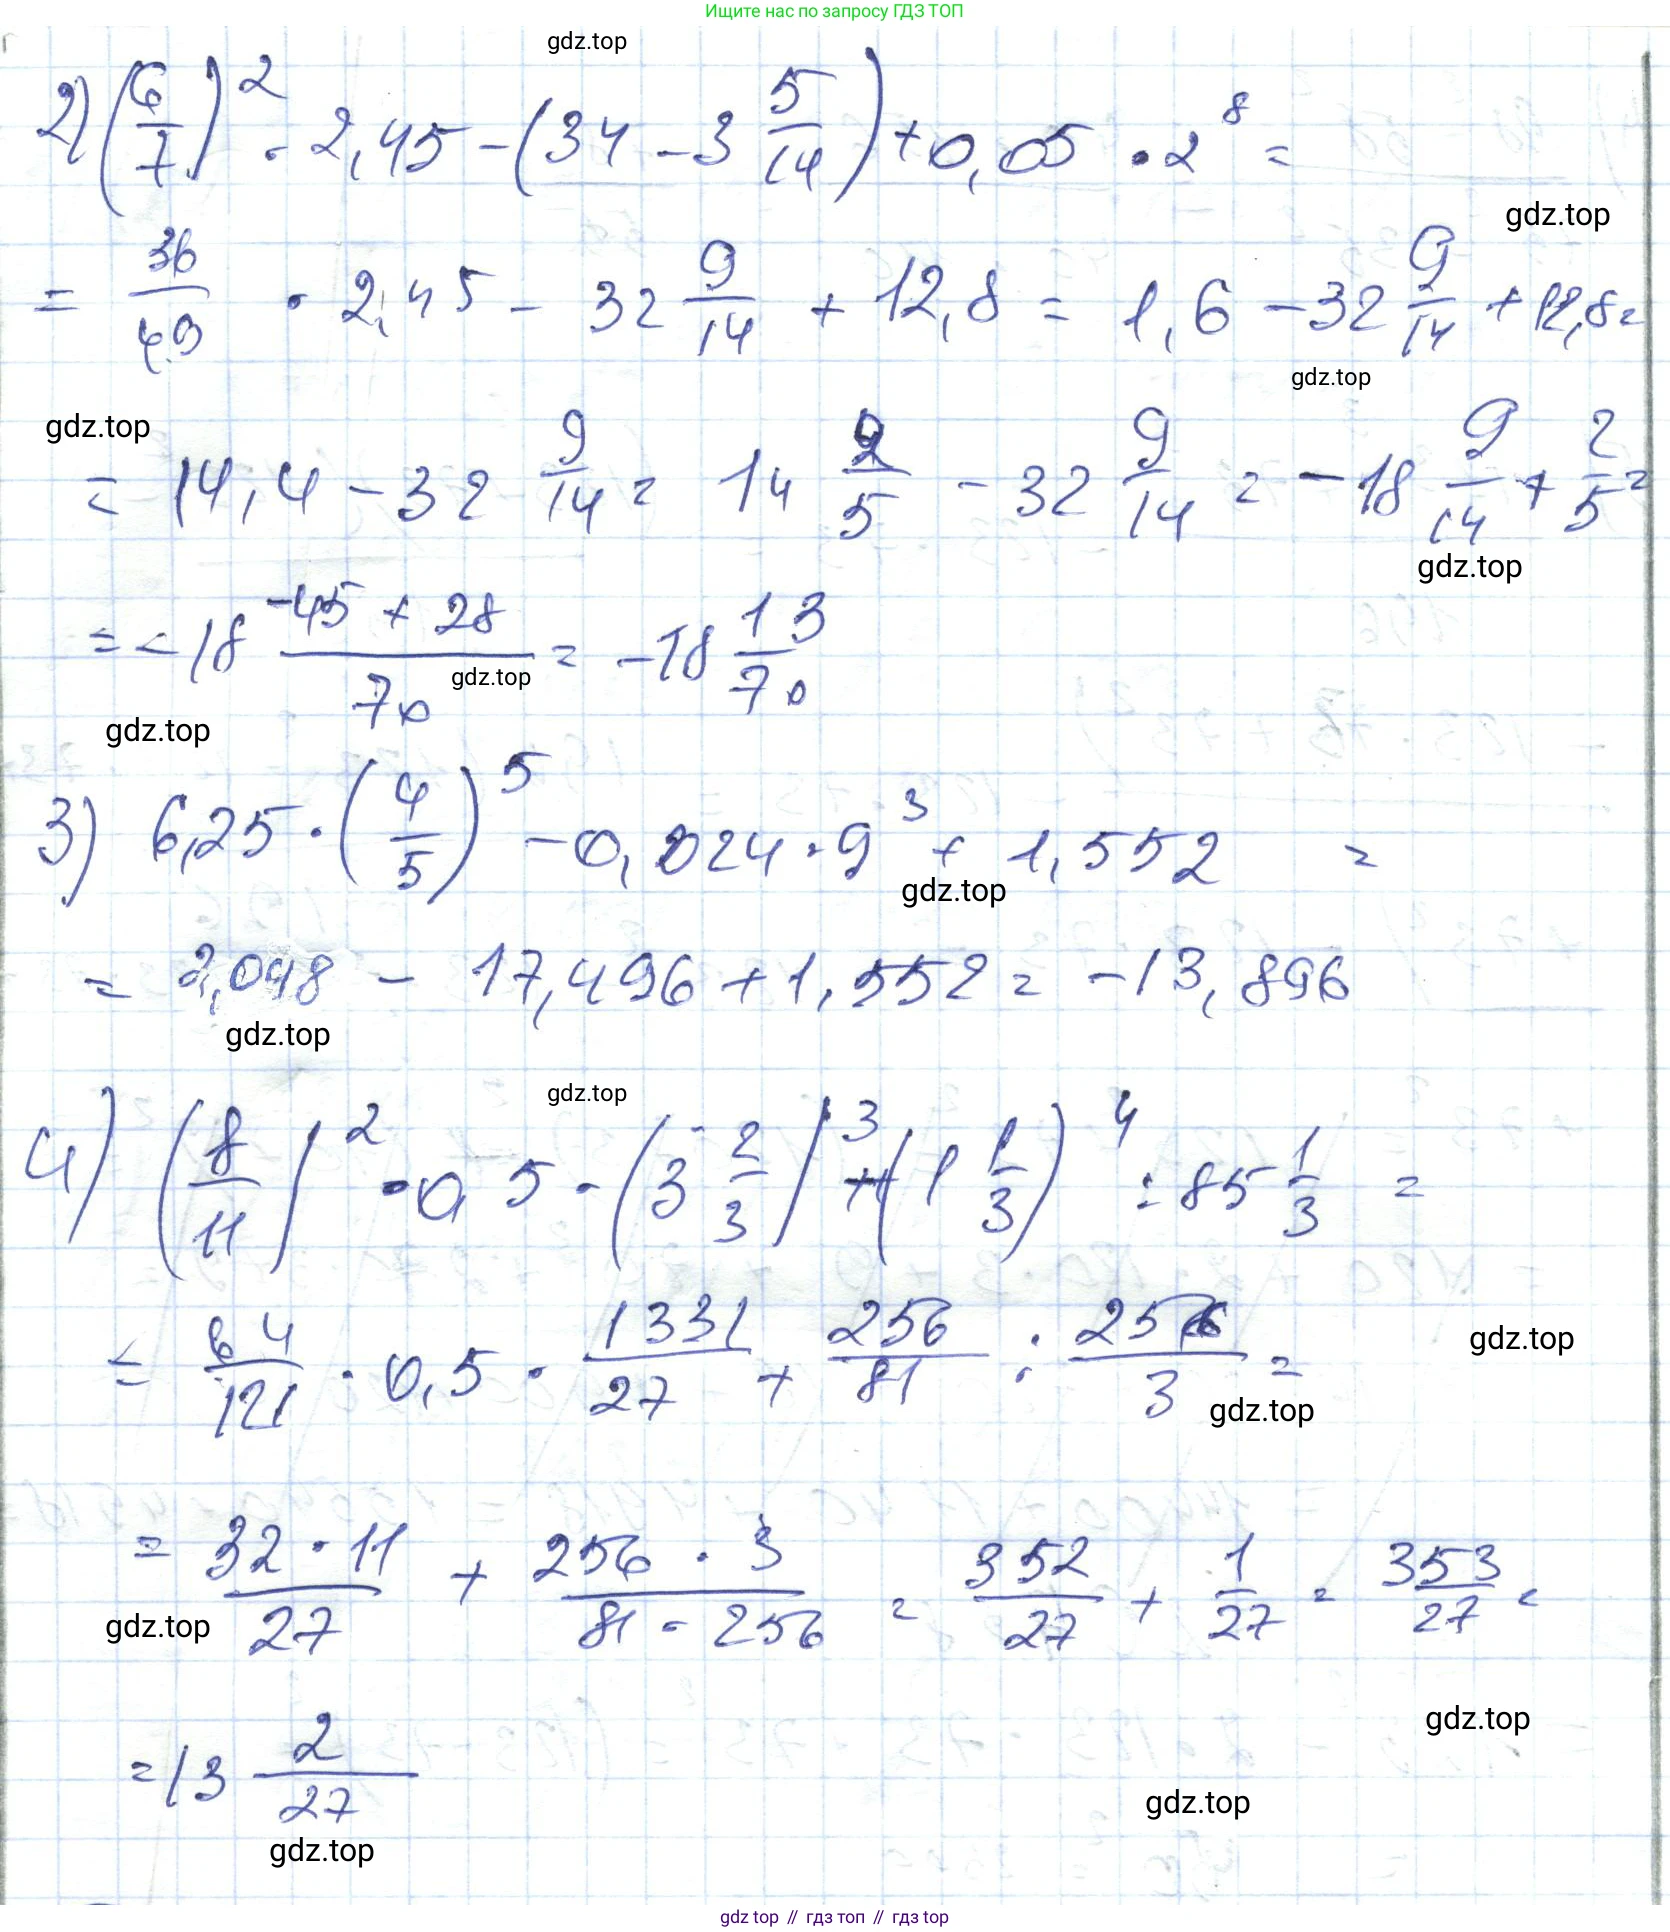 Ищите нас по запросу ГДЗ ТОП
gdz.top
2) (6/7)^2 · 2,45 - (34 - 3 5/14) + 0,05 · 2^8 =
gdz.top
= 36/49 · 2,45 - 32 9/14 + 12,8 = 1,6 - 32 9/14 + 12,8 =
gdz.top
gdz.top
= 14,4 - 32 9/14 = 14 2/5 - 32 9/14 = -18 9/14 + 2/5 =
gdz.top
= -18 (-45 + 28)/70 = -18 13/70
gdz.top
gdz.top
3) 6,25 · (4/5)^5 - 0,024 · 9^3 + 1,552 =
gdz.top
= 2,048 - 17,496 + 1,552 = -13,896
gdz.top
gdz.top
4) (8/11)^2 · 0,5 · (3 2/3)^3 + (1 1/3)^4 : 85 1/3 =
= 64/121 · 0,5 · 1331/27 + 256/81 : 256/3 =
gdz.top
gdz.top
= 32 · 11/27 + 256 · 3/81 · 256 = 352/27 + 1/27 = 353/27 =
gdz.top
gdz.top
= 13 2/27
gdz.top
gdz.top
gdz top // гдз топ // гдз top